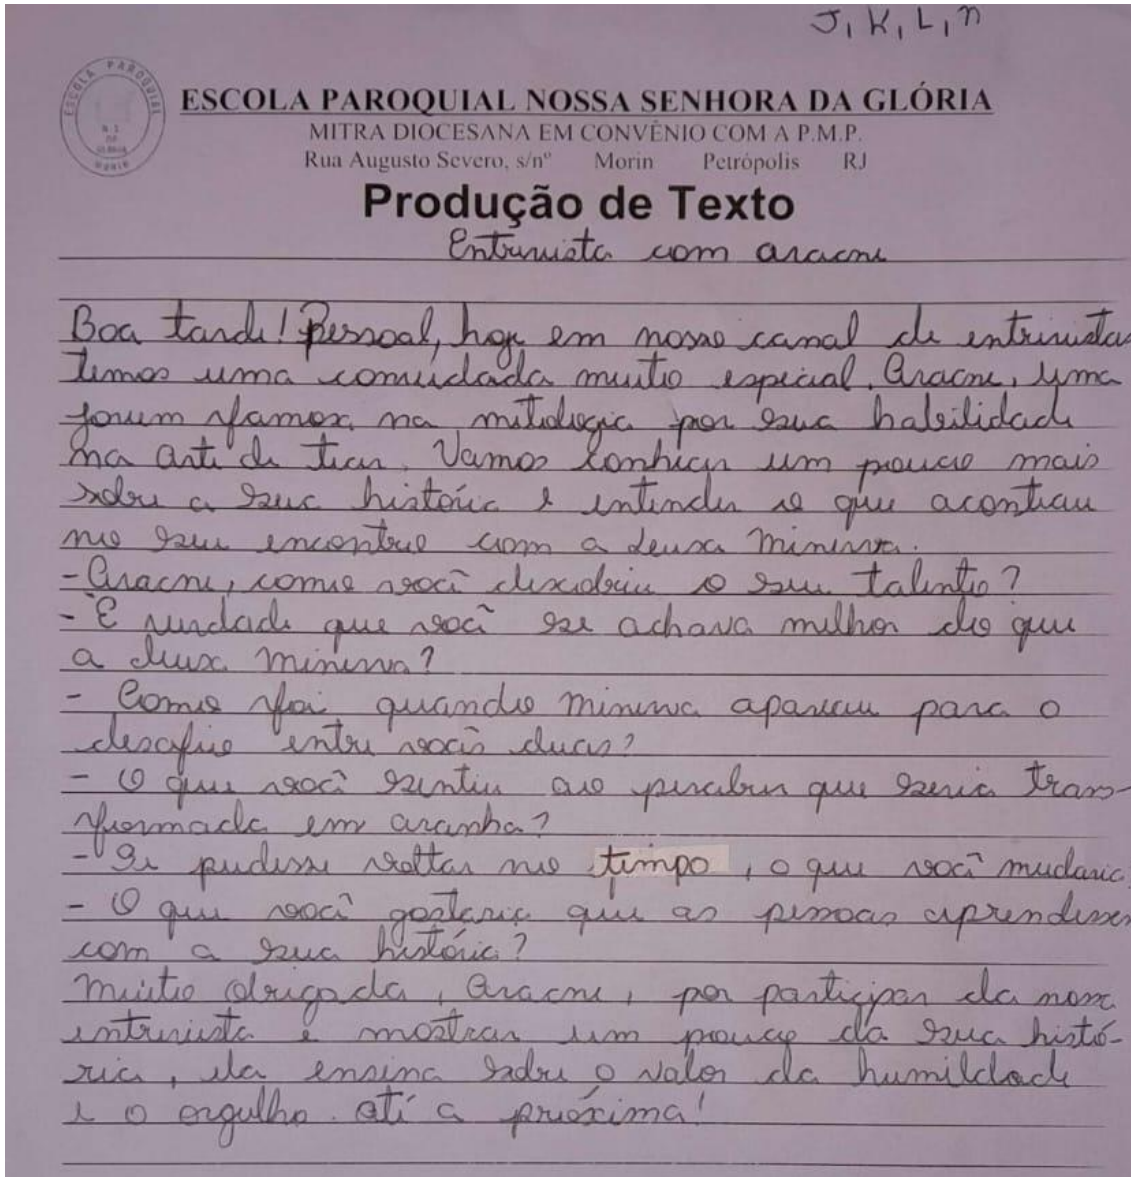 J, K, L, n
ESCOLA PAROQUIAL
N. S.
DA
GLÓRIA
MORIN
ESCOLA PAROQUIAL NOSSA SENHORA DA GLÓRIA
MITRA DIOCESANA EM CONVÊNIO COM A P.M.P.
Rua Augusto Severo, s/nº Morin Petrópolis RJ
Produção de Texto
Entrevista com aracne
Boa tarde! Pessoal, hoje em nosso canal de entrevistas
temos uma convidada muito especial. Aracne, uma
jovem famosa na mitologia por sua habilidade
na arte de tecer. Vamos conhecer um pouco mais
sobre a sua história e entender o que aconteceu
no seu encontro com a deusa Minerva.
- Aracne, como você descobriu o seu talento?
- É verdade que você se achava melhor do que
a deusa Minerva?
- Como foi quando Minerva apareceu para o
desafio entre vocês duas?
- O que você sentiu ao perceber que seria trans-
formada em aranha?
- Se pudesse voltar no tempo, o que você mudaria
- O que você gostaria que as pessoas aprendessem
com a sua história?
Muito obrigada, Aracne, por participar da nossa
entrevista e mostrar um pouco da sua histó-
ria, ela ensina sobre o valor da humildade
e o orgulho. até a próxima!